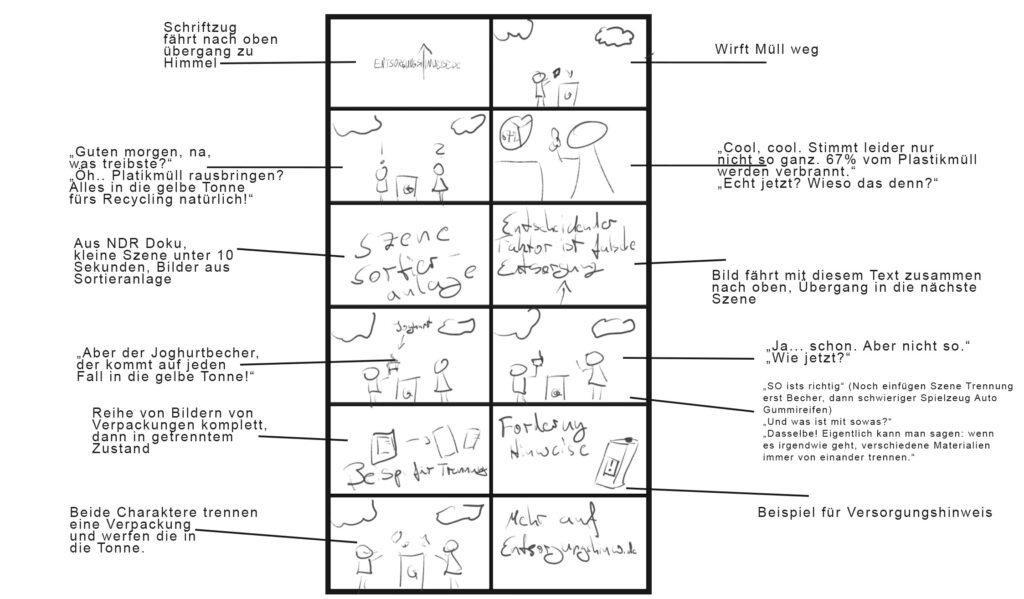 Schriftzug
fährt nach oben
übergang zu
Himmel
Wirft Müll weg
G
„Guten morgen, na,
was treibste?“
„Oh.. Platikmüll rausbringen?
Alles in die gelbe Tonne
fürs Recycling natürlich!“
1
2
G
67%
„Cool, cool. Stimmt leider nur
nicht so ganz. 67% vom Plastikmüll
werden verbrannt.“
„Echt jetzt? Wieso das denn?“
Aus NDR Doku,
kleine Szene unter 10
Sekunden, Bilder aus
Sortieranlage
Szene
Sortier-
anlage
Entscheidender
Faktor ist falsche
Entsorgung
Bild fährt mit diesem Text zusammen
nach oben, Übergang in die nächste
Szene
„Aber der Joghurtbecher,
der kommt auf jeden
Fall in die gelbe Tonne!“
Joghurt
G
G
„Ja... schon. Aber nicht so.“
„Wie jetzt?“
„SO ists richtig“ (Noch einfügen Szene Trennung
erst Becher, dann schwieriger Spielzeug Auto
Gummireifen)
„Und was ist mit sowas?“
„Dasselbe! Eigentlich kann man sagen: wenn
es irgendwie geht, verschiedene Materialien
immer von einander trennen.“
Reihe von Bildern von
Verpackungen komplett,
dann in getrenntem
Zustand
Beisp für Trennung
Forderung
Hinweise
Beispiel für Versorgungshinweis
Beide Charaktere trennen
eine Verpackung
und werfen die in
die Tonne.
G
Mehr auf
Entsorgungshinwei.de